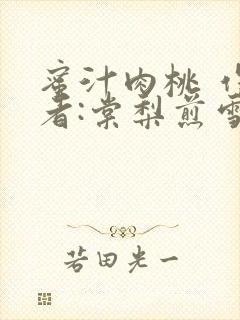 蜜汁肉桃 作
者:棠梨煎雪
若田光一